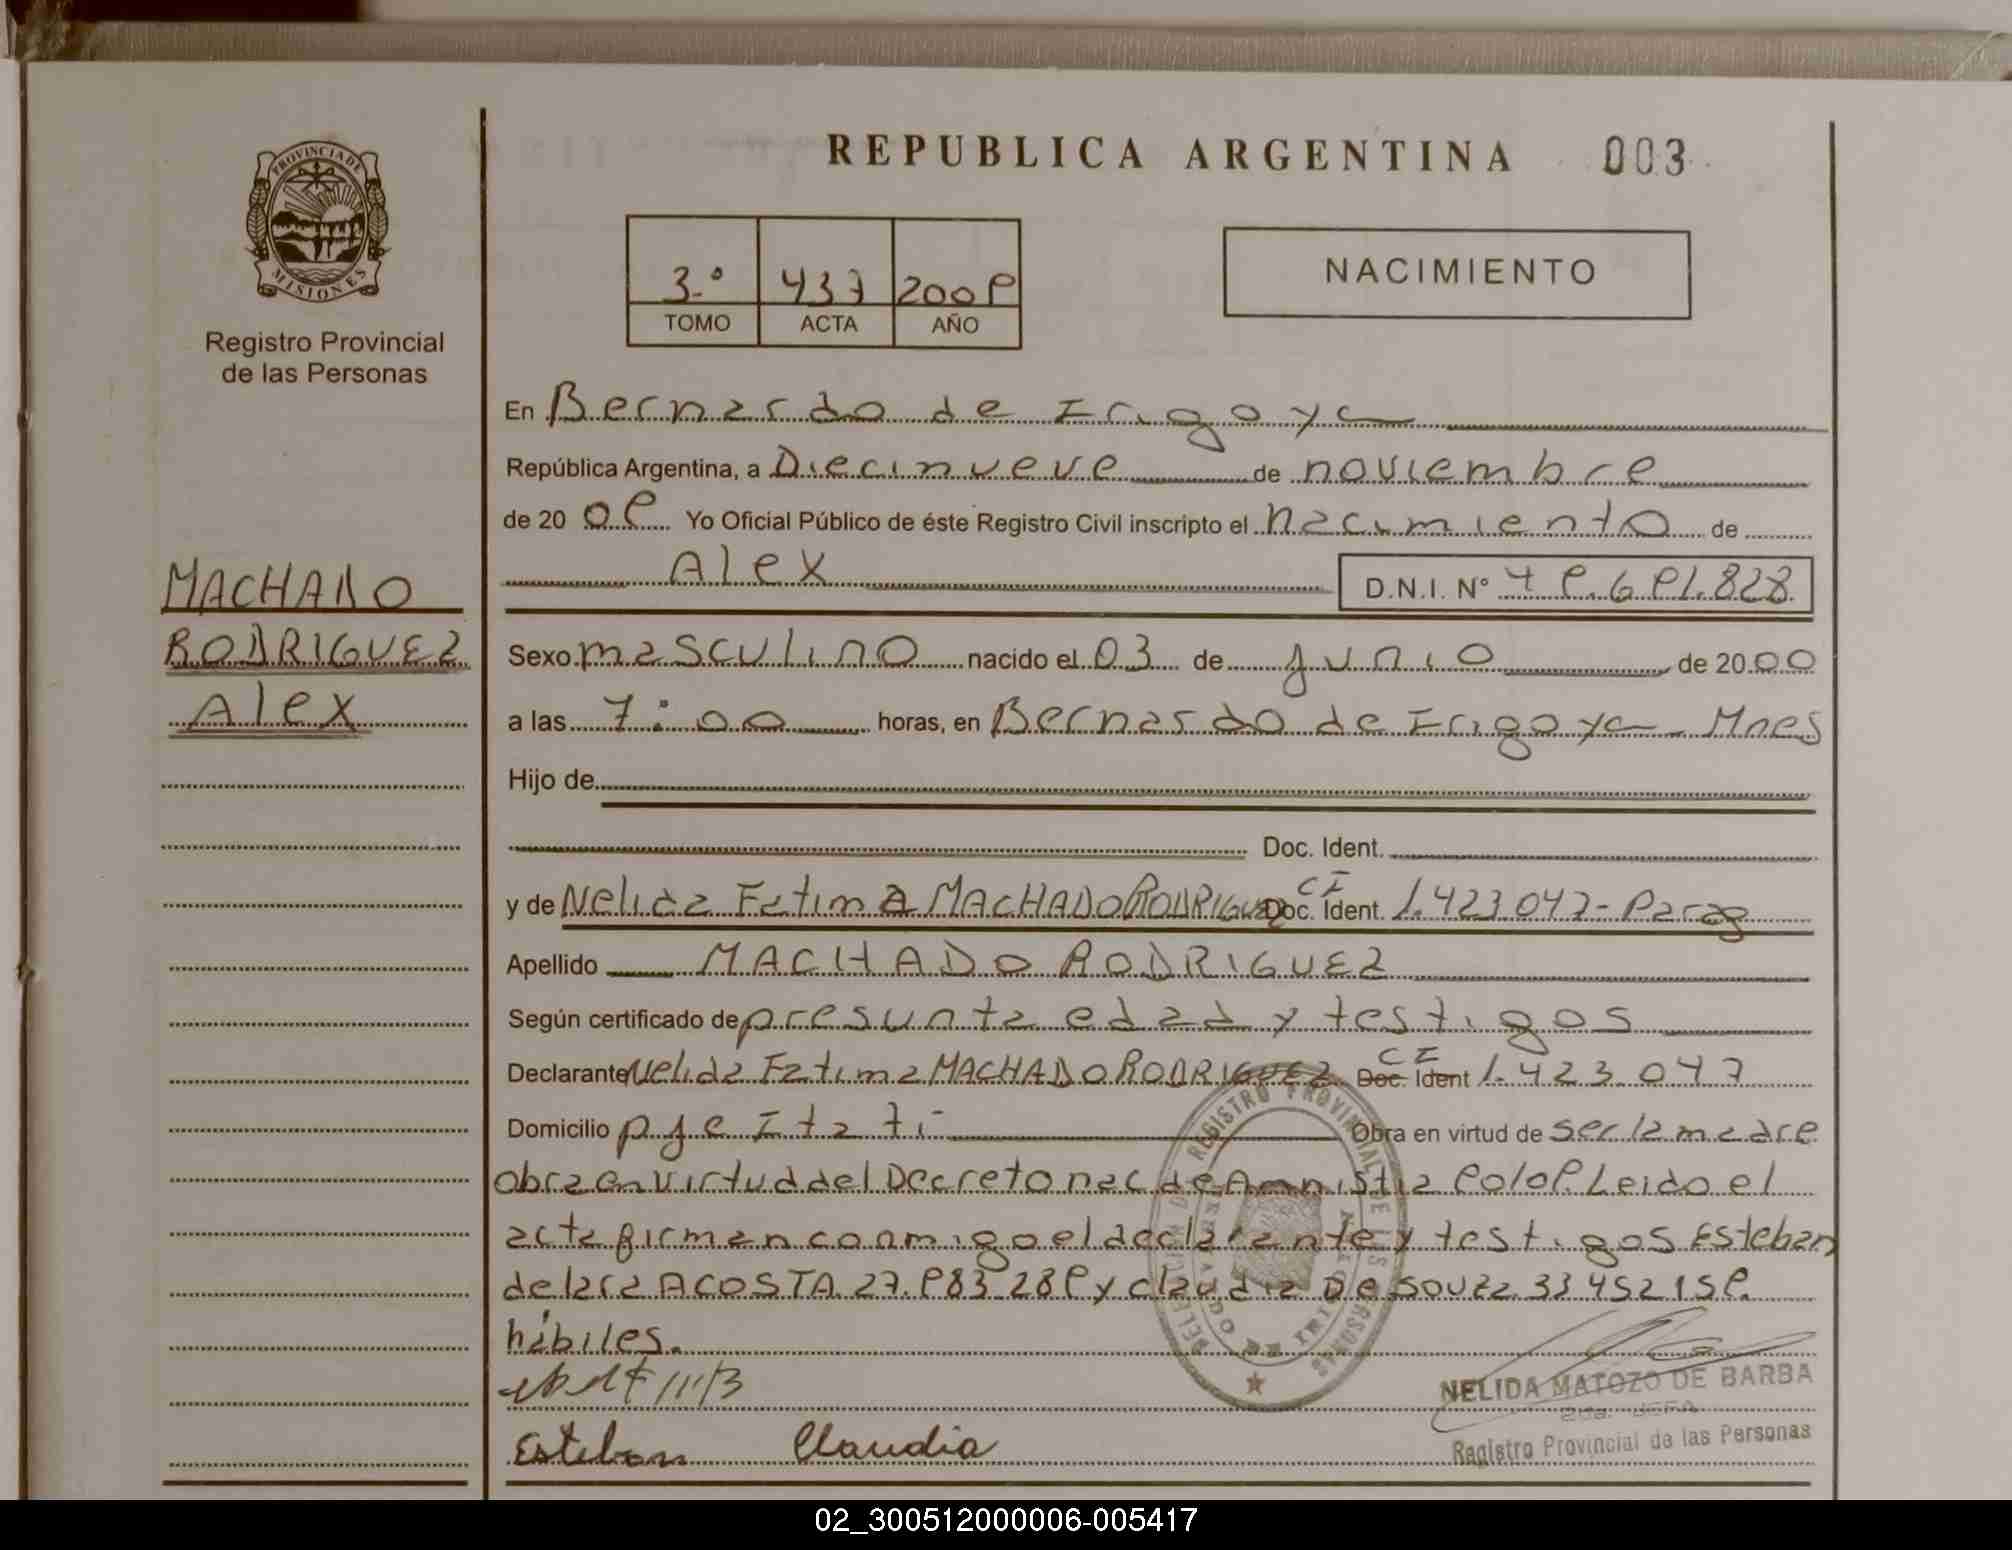 REPUBLICA ARGENTINA 003
PROVINCIA DE
MISIONES
Registro Provincial
de las Personas
3.° 437 2009
TOMO ACTA AÑO
NACIMIENTO
En Bernardo de Irigoyen
República Argentina, a Diecinueve de noviembre
de 20 09 Yo Oficial Público de éste Registro Civil inscripto el Nacimiento de
Alex D.N.I. N° 49.691.828
MACHADO
RODRIGUEZ
Alex
Sexo masculino nacido el 03 de junio de 20 00
a las 7:00 horas, en Bernardo de Irigoyen Mnes
Hijo de
Doc. Ident.
y de Nelida Fatima MACHADO RODRIGUEZ CI Doc. Ident. 1.423.047- Parag
Apellido MACHADO RODRIGUEZ
Según certificado de presunta edad y testigos
Declarante Nelida Fatima MACHADO RODRIGUEZ CI Doc. Ident 1.423.047
Domicilio pje Itati Obra en virtud de ser la madre
obra en virtud del Decreto nac de Amnistia 90/09. Leido el
acta firman conmigo el declarante y testigos Esteban
de lara ACOSTA 27.983.289 y claudia De Souza 33 452 159.
hábiles.
Esteban Claudia
NELIDA MATOZO DE BARBA
2da. JEFA
Registro Provincial de las Personas
02_300512000006-005417